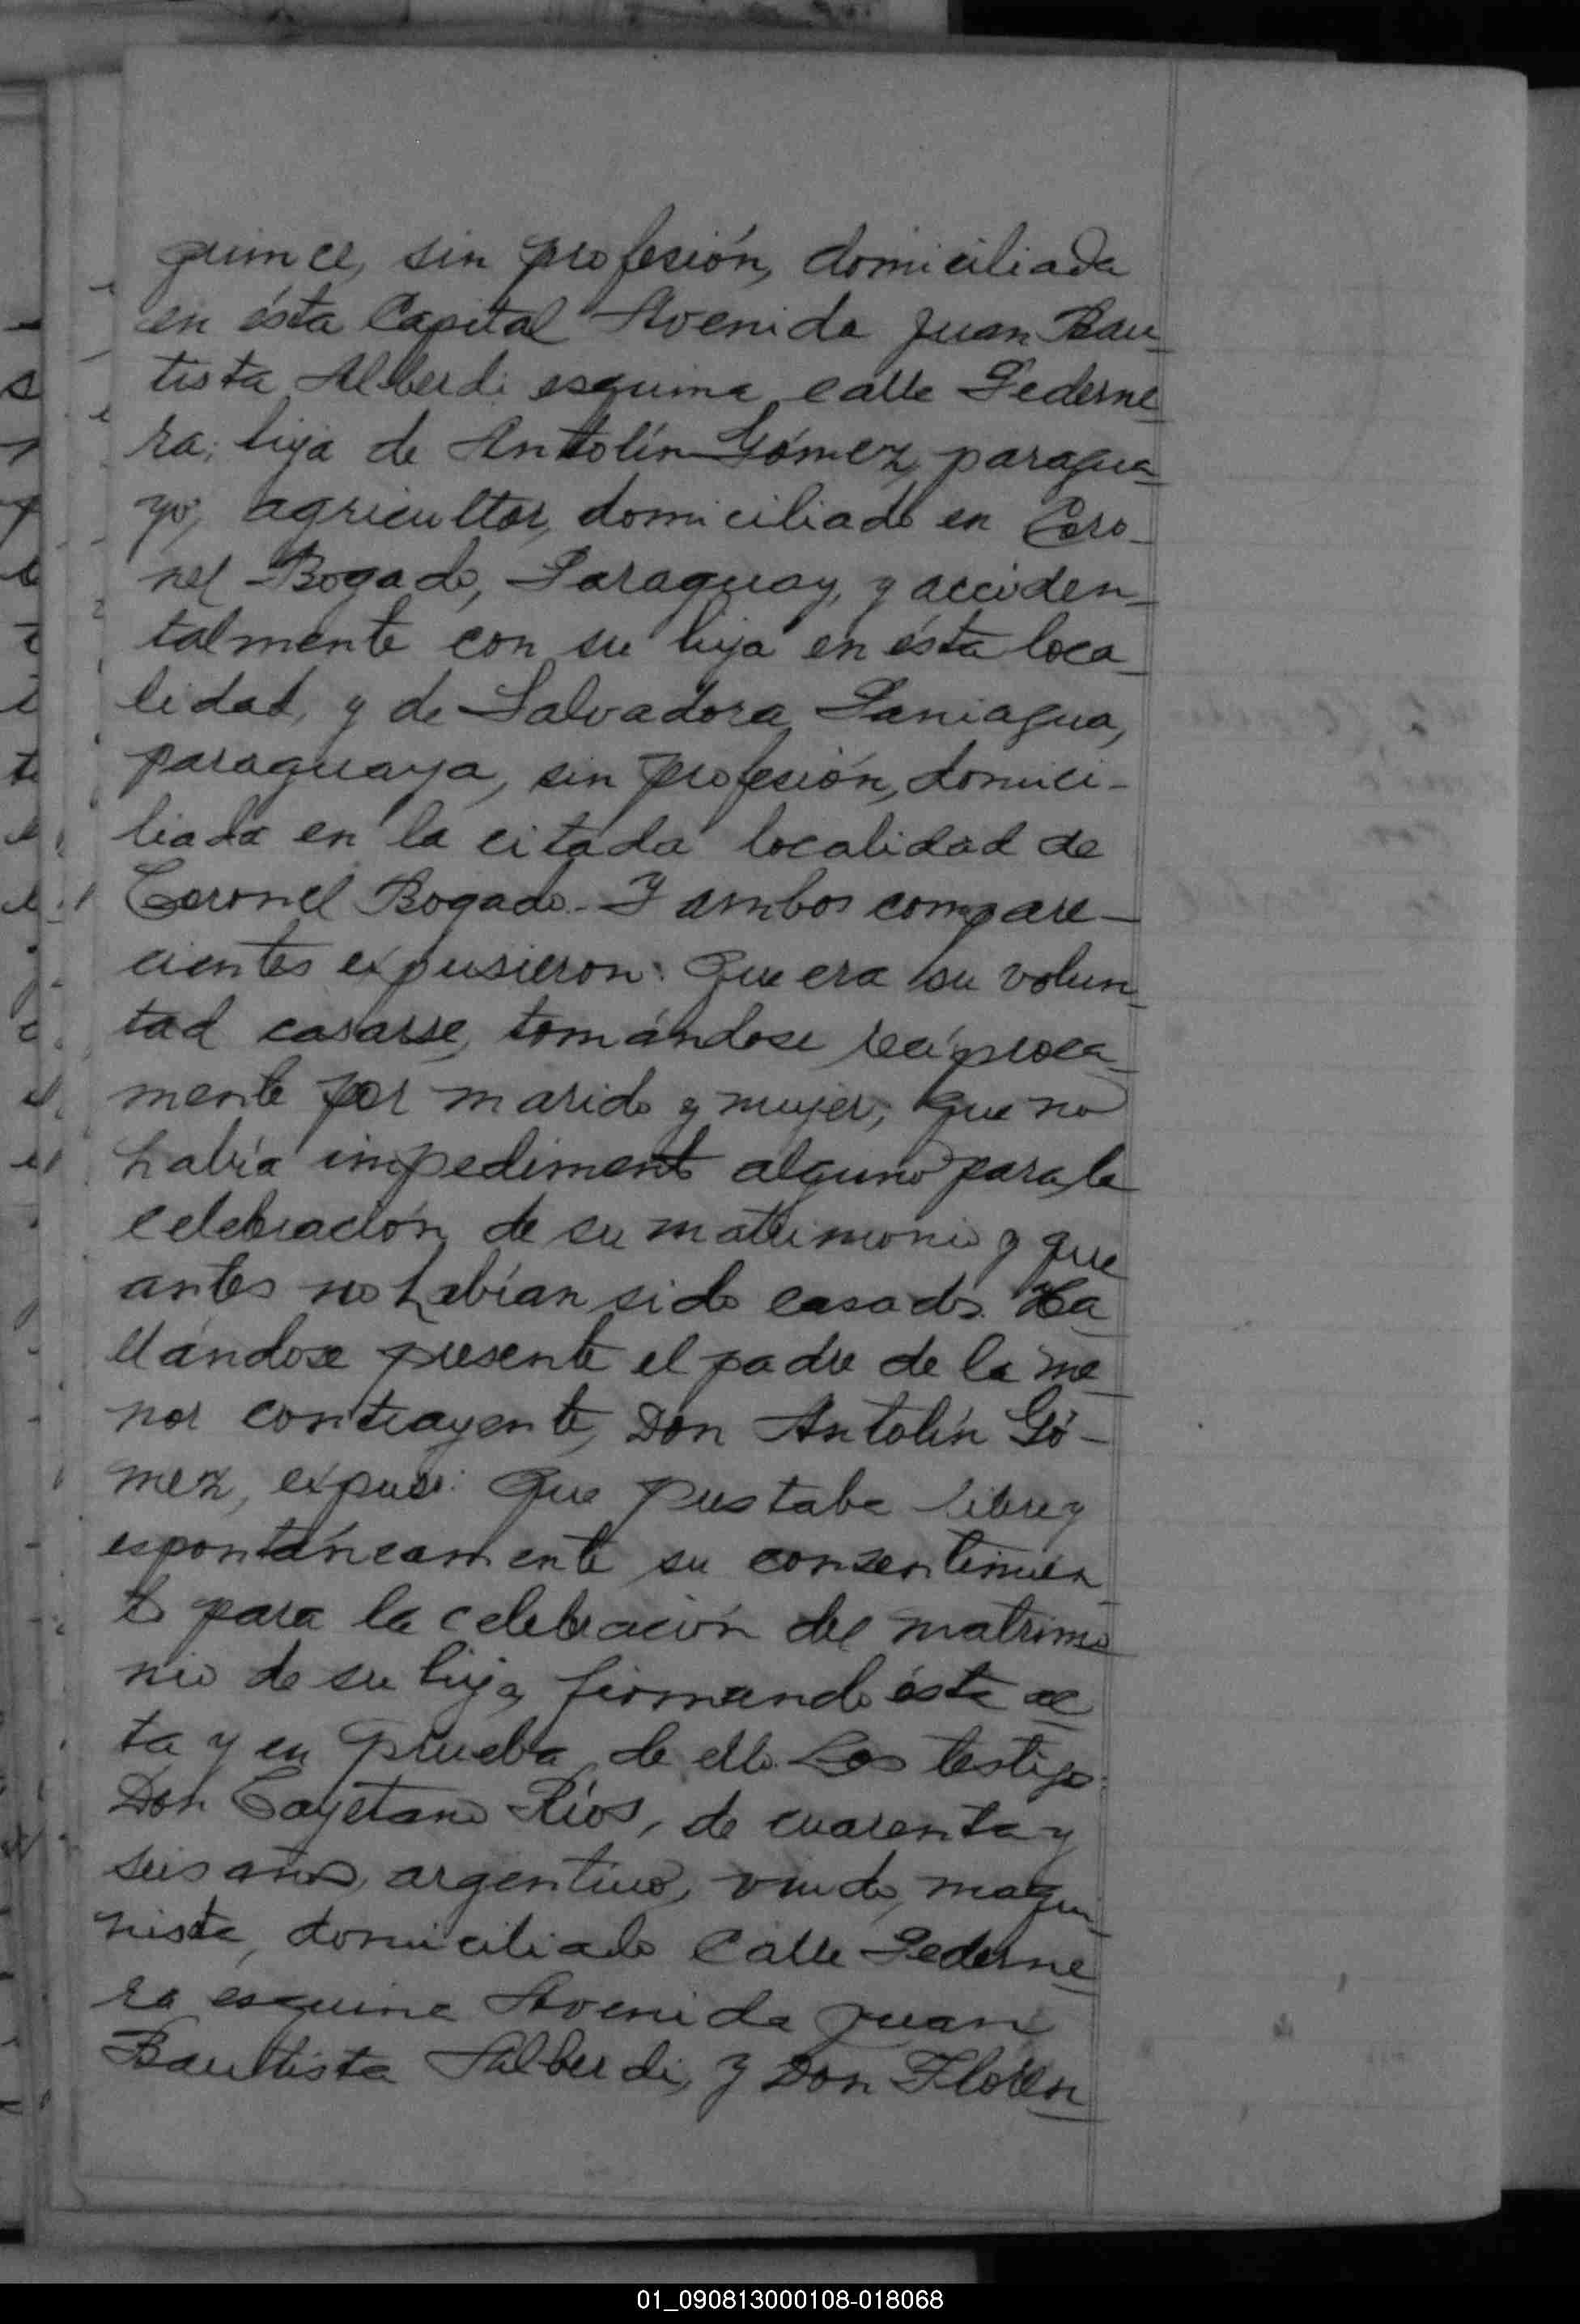 quince, sin profesión, domiciliada
en ésta Capital Avenida Juan Bau-
tista Alberdi esquina calle Pederne
ra; hija de Antolín Gómez, paragua-
yo, agricultor, domiciliado en Coro-
nel Bogado, Paraguay, y acciden-
talmente con su hija en ésta loca-
lidad, y de Salvadora Paniagua,
paraguaya, sin profesión, domici-
liada en la citada localidad de
Coronel Bogado.- Y ambos compare-
cientes expusieron: Que era su volun-
tad casarse, tomándose recíproca-
mente por marido y mujer; que no
había impedimento alguno para la
celebración de su matrimonio y que
antes no habían sido casados. Ha-
llándose presente el padre de la me-
nor contrayente, Don Antolín Gó-
mez, expuso: Que prestaba libre y
espontáneamente su consentimien-
to para la celebración del matrimo
nio de su hija, firmando ésta ac
ta y en prueba de ello. Los testigos:
Don Cayetano Ríos, de cuarenta y
seis años, argentino, viudo, maqui-
nista, domiciliado Calle Pederne
ra esquina Avenida Juan
Bautista Alberdi, y Don Floren
01_090813000108-018068